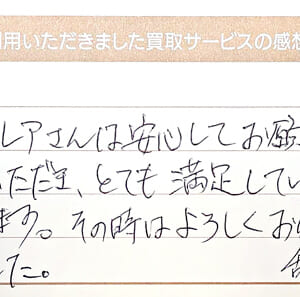 用いただきました買取サービスの感想
レアさんは安心してお願
ただき、とても満足してい
ます。その時はよろしくお
した。